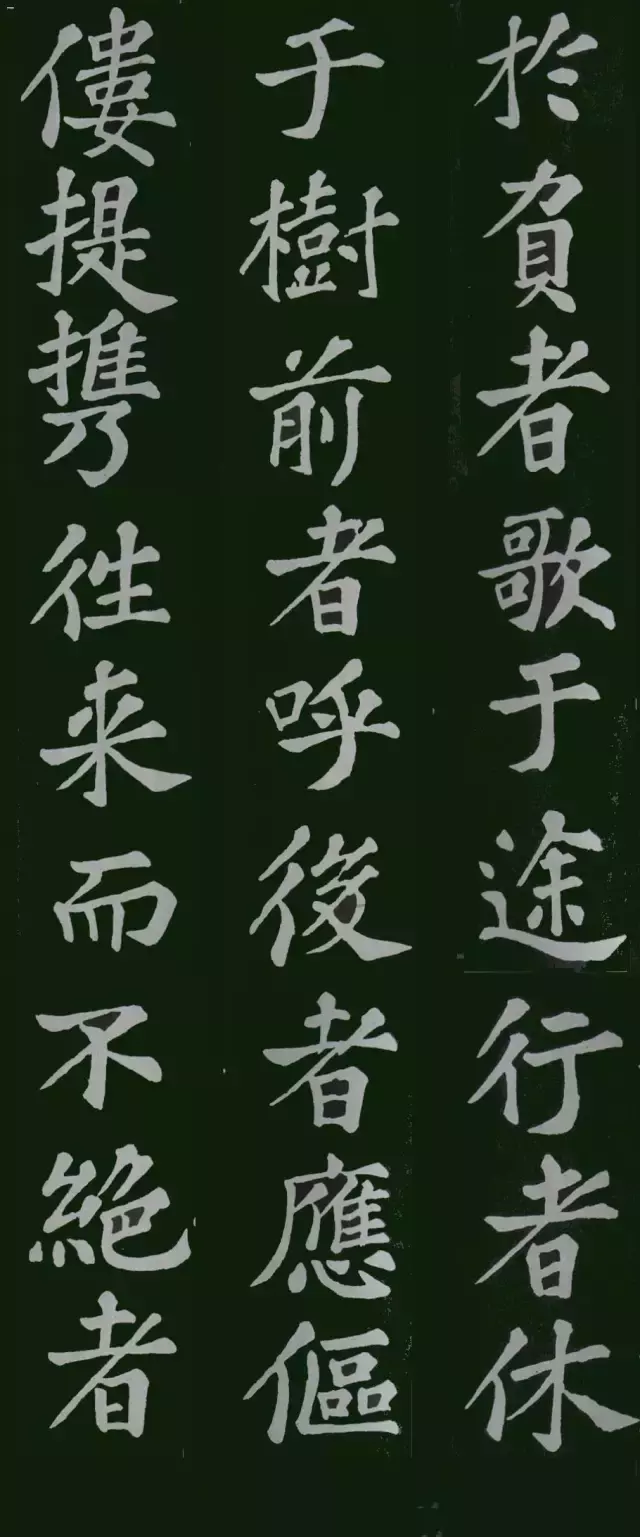 於負者歌于途行者休
于樹前者呼後者應傴
僂提携徃来而不絶者